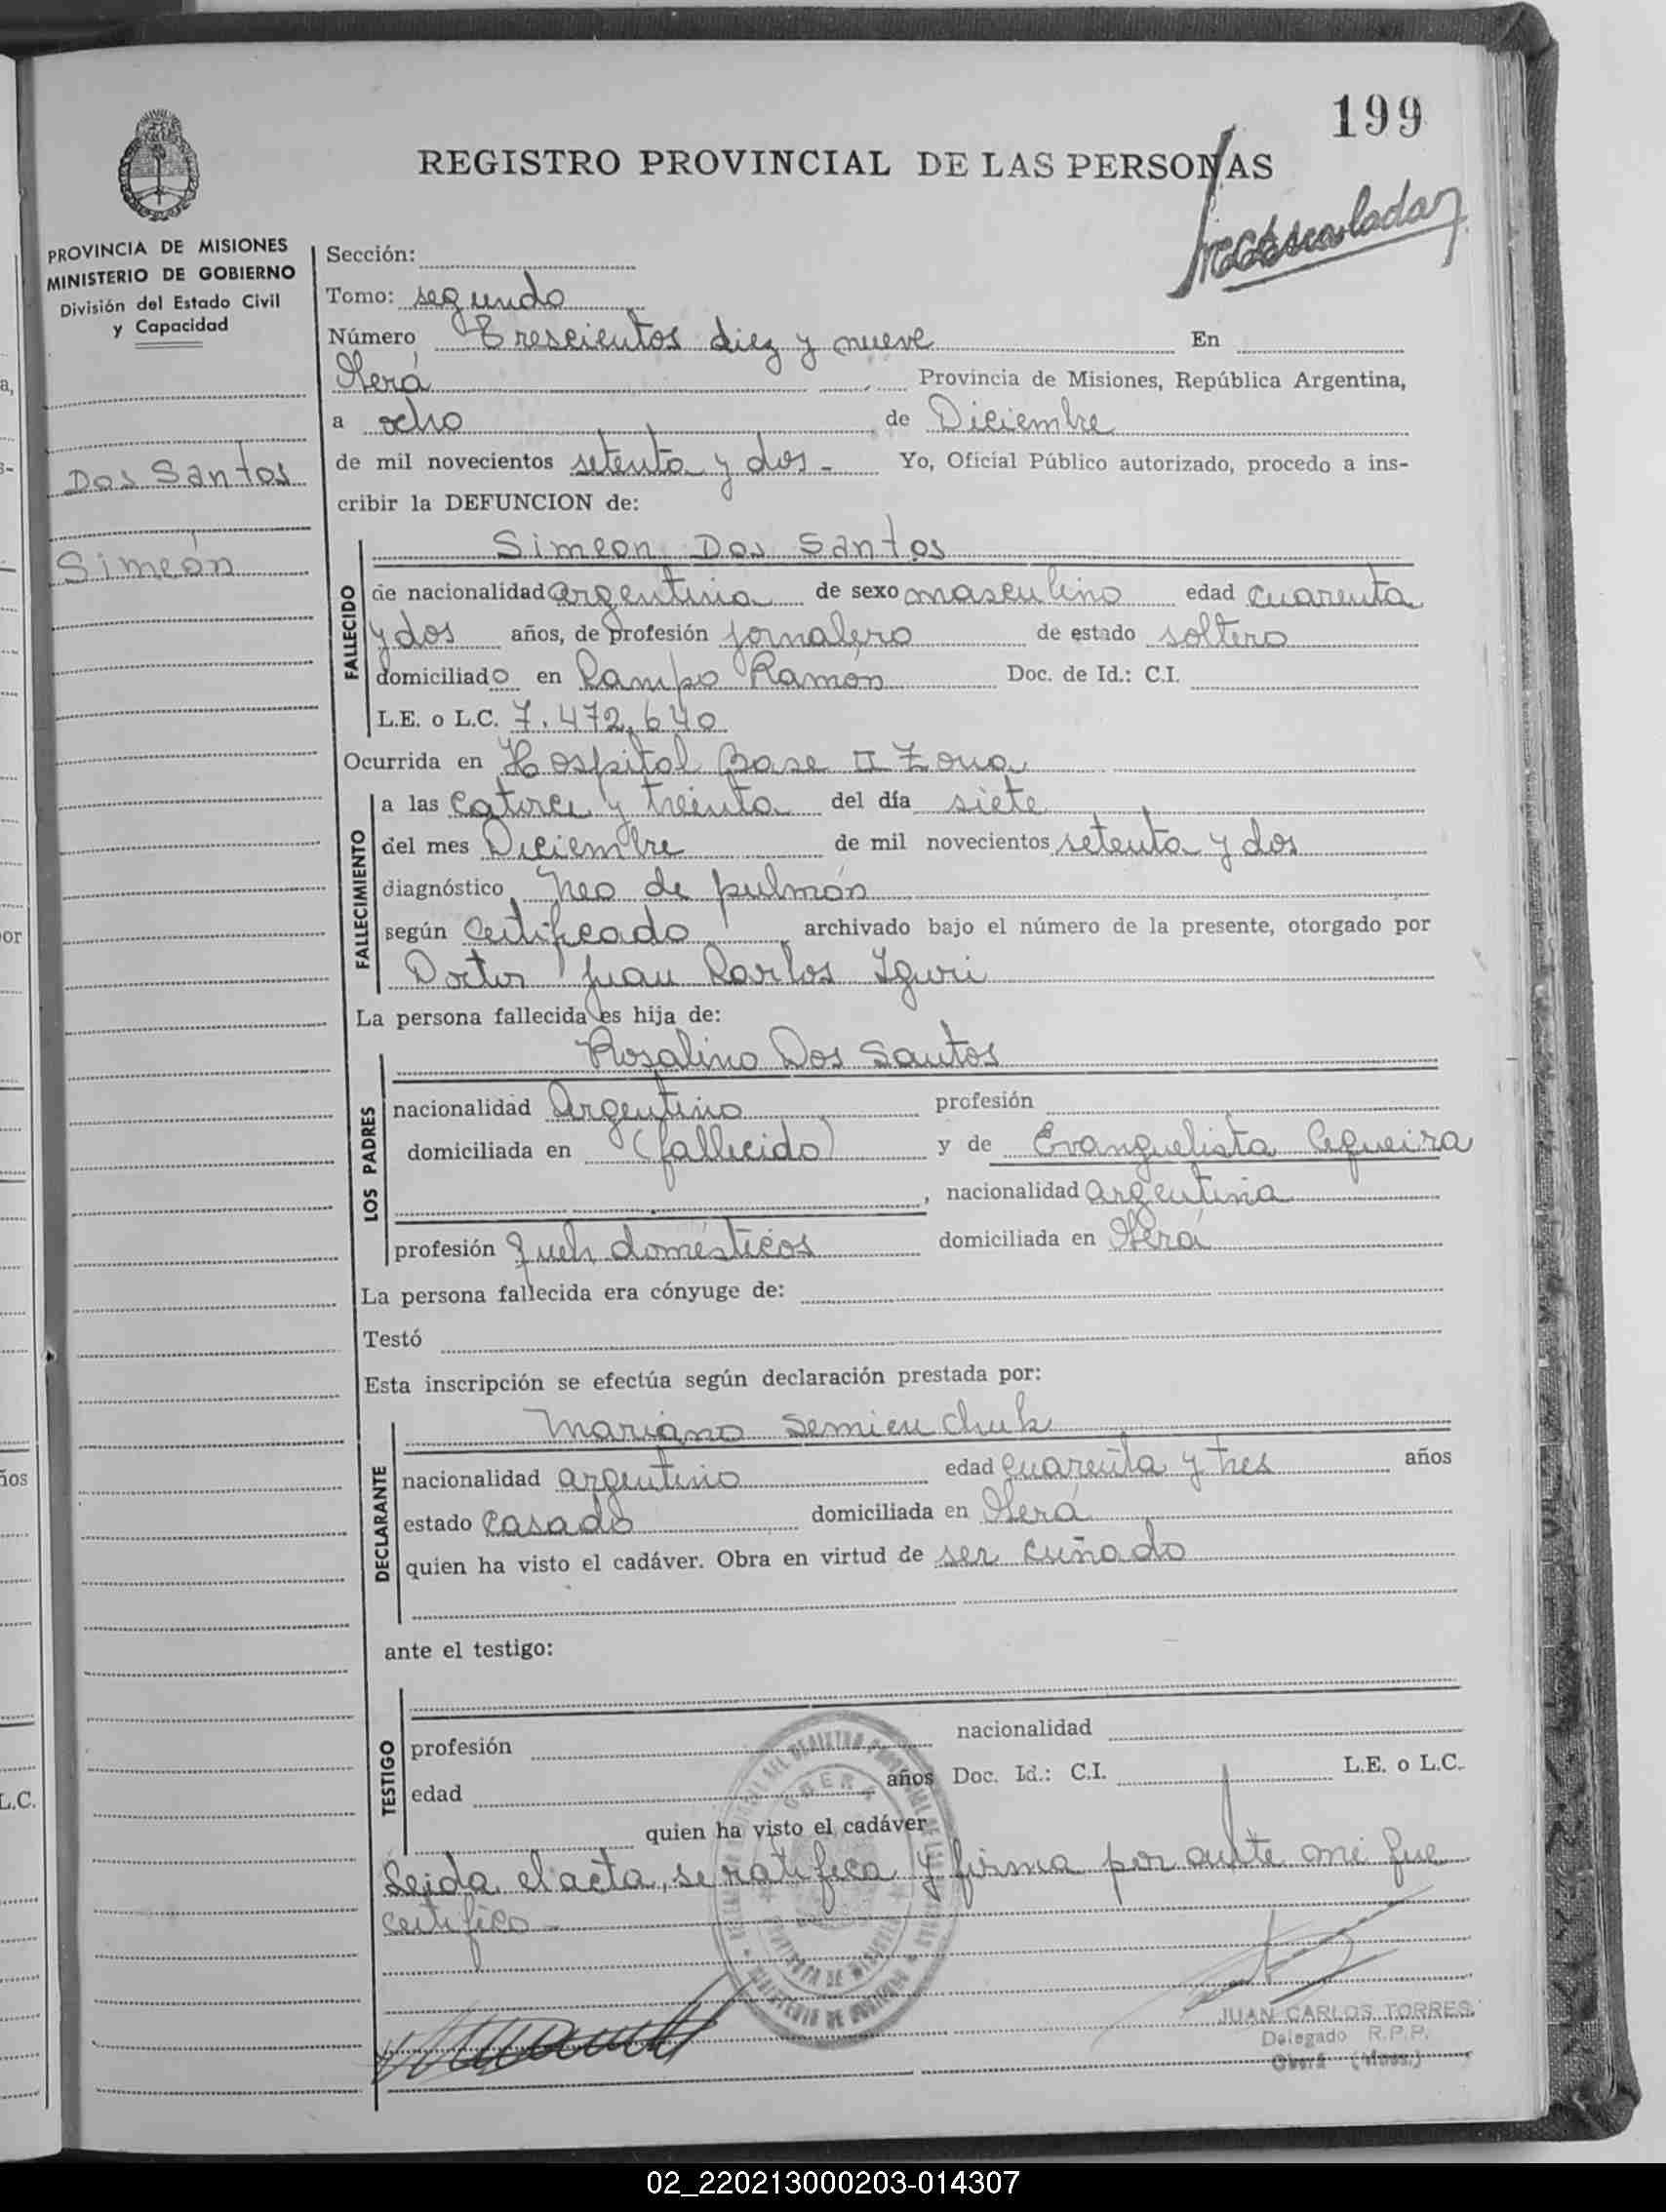 199
REGISTRO PROVINCIAL DE LAS PERSONAS
PROVINCIA DE MISIONES
MINISTERIO DE GOBIERNO
División del Estado Civil
y Capacidad
Dos Santos
Simeón
Sección:
Tomo: segundo
Número Trescientos diez y nueve En
Oberá Provincia de Misiones, República Argentina,
a ocho de Diciembre
de mil novecientos setenta y dos - Yo, Oficial Público autorizado, procedo a ins-
cribir la DEFUNCION de:
Simeon Dos Santos
FALLECIDO
de nacionalidad argentina de sexo masculino edad cuarenta
y dos años, de profesión jornalero de estado soltero
domiciliado en Campo Ramón Doc. de Id.: C.I.
L.E. o L.C. 7.472.640
Ocurrida en Hospital Base II Zona
FALLECIMIENTO
a las catorce y treinta del día siete
del mes Diciembre de mil novecientos setenta y dos
diagnóstico Neo de pulmón
según certificado archivado bajo el número de la presente, otorgado por
Doctor Juan Carlos Iguri
La persona fallecida es hija de:
Rosalino Dos Santos
LOS PADRES
nacionalidad Argentino profesión
domiciliada en (fallecido) y de Evanguelista Cequeira
, nacionalidad argentina
profesión Queh. domésticos domiciliada en Oberá
La persona fallecida era cónyuge de:
Testó
Esta inscripción se efectúa según declaración prestada por:
Mariano Semienchuk
DECLARANTE
nacionalidad argentino edad cuarenta y tres años
estado casado domiciliada en Oberá
quien ha visto el cadáver. Obra en virtud de ser cuñado
ante el testigo:
TESTIGO
profesión nacionalidad
edad años Doc. Id.: C.I. L.E. o L.C.
quien ha visto el cadáver
Leida el acta, se ratifica y firma por ante mi que
certifico -
OBERA
JUAN CARLOS TORRES
Delegado R.P.P.
Oberá (Mnes.)
a,
s-
por
ños
L.C.
02_220213000203-014307